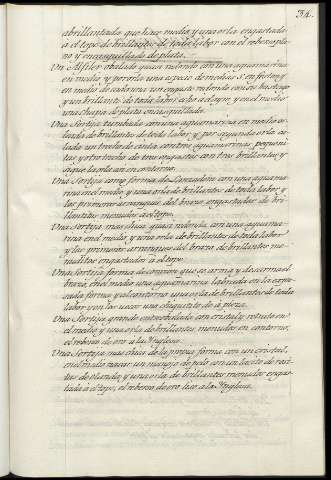 34.
abrillantada que hay medio, y una orla engastada
a el tope de brillantes de toda labor con el reberso pla-
no y enchapillado de plata.
Un Alfiler obalado quasi redondo con una aguamarina
en medio y por orla una especie de medias S. en festones y
en medio de cada una un engaste redondo con su hastago
y un brillante de toda labor echo a el ayre y en el medio
una chapa de plata enchapillada.
Una Sortija tumbada con una aguamarina en medio or-
leada de brillantes de toda labor y por segunda orla a ca-
lado un trecho de cinta con tres aguamarinas pequeñi-
tas y otro trecho de tres engastes con tres brillantes y
sigue la orla con en contorno.
Una Sortija como forma de Lanzadera con una aguama-
rina en el medio y una orla de brillantes de toda labor y
los primeros arranques del brazo engastados de bri-
llantitos menudos a el tope.
Una Sortija mas chica quasi redonda con una aguama-
rina en el medio y una orla de brillantes de toda labor
y los primeros arranques del brazo de brillantes me-
nuditos engastados a el tope.
Una Sortija forma de corazon que se arma y desarma el
brazo, en el medio una aguamarina labrada en la expre-
sada forma y al contorno una orla de brillantes de toda
labor y en las una chapa de piezas.
Una Sortija grande entreobalada con cristal y retrato en
el medio y una orla de brillantes menudos en contorno,
el reberso de oro a la Ynglesa.
Una Sortija mas chica de la propia forma con un cristal,
en el medio nacar, un manojo de pelo con un lacito de rai-
tas de olanda, y una orla de brillantes menudos engas-
tada a el tope, el reberso de oro liso a la Ynglesa.